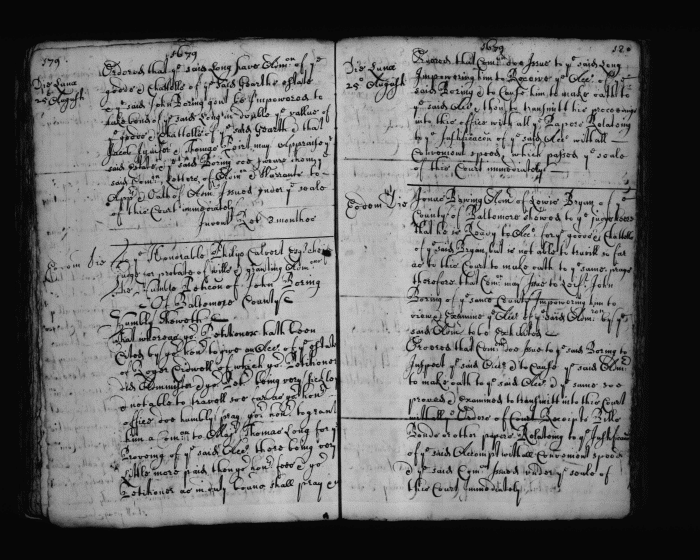 179
1679
Die Lunæ
25 August
Ordered that ye said Long have Admon of ye
goods & Chattells of ye said Gearth estate
ye said John Boring gent be Impowered to
take bonds of ye said Long in double ye value of
ye goods & Chattells of ye said Gearth & that
Jacob & Thomas may Appraise ye
said estate, & ye said Boring
said Comon, Letters of Admon & Warrants to
Appr & Oath of Admon Issued under ye seale
of this Court immediately
Inventory Ret 3 months
Eodem die
To ye Honorable Philip Calvert Esqr cheife
Judge for probate of wills & granting Admons
The humble Peticon of John Boring
Of Baltemore County
Humbly Sheweth
That whereas yor Petitioner hath been
Cited by yor honor to give an Accot of ye estate
of Roger Sidwell of which yor Petitioner
did Administer & yor Petr being very sickly
& not able to travell soe far as yor honors
office doe humbly pray yor honor to grant
him a Comon to Majr Thomas Long for ye
Proveing of ye said Accot there being very
little more paid then yor honors fees & yor
Petitioner as in duty bound shall pray &c
1679
180
Die Lunæ
25 August
Ordered that Comon doe Issue to ye said Long
Impowering him to Receive ye Accot of
said Boring & to Cause him to make oath to
ye said Accot, then to transmitt his proceedings
into this office with all ye Papers Relating
to ye Justificacon of ye said Accot with all
Convenient speed, which passed ye seale
of this Court immediately
Eodem Die
Jonas Bowing Admor of Lewis Bryan of ye
County of Baltemore shewed to ye judge here
that he is Ready to Accot for ye goods & Chattells
of ye said Bryan, but is not able to travell so far
as to this Court to make oath to ye same, prayes
therefore that Comon may Issue to Capt John
Boring of ye same County Impowering him to
view & Examine ye Accot of ye said Admor of ye
said
Ordered that Comon doe Issue to ye said Boring to
Inspect ye said Accot & to Cause ye said Admor
to make oath to ye said Accot & ye same soe
proved & examined to transmitt into this Court
with all Orders of Court Receipts Bills
Bonds or other papers Relateing to ye Justificacon
of ye said Accompt with all Convenient speed
& ye said Comon Issued under ye seale of
this Court Immediately